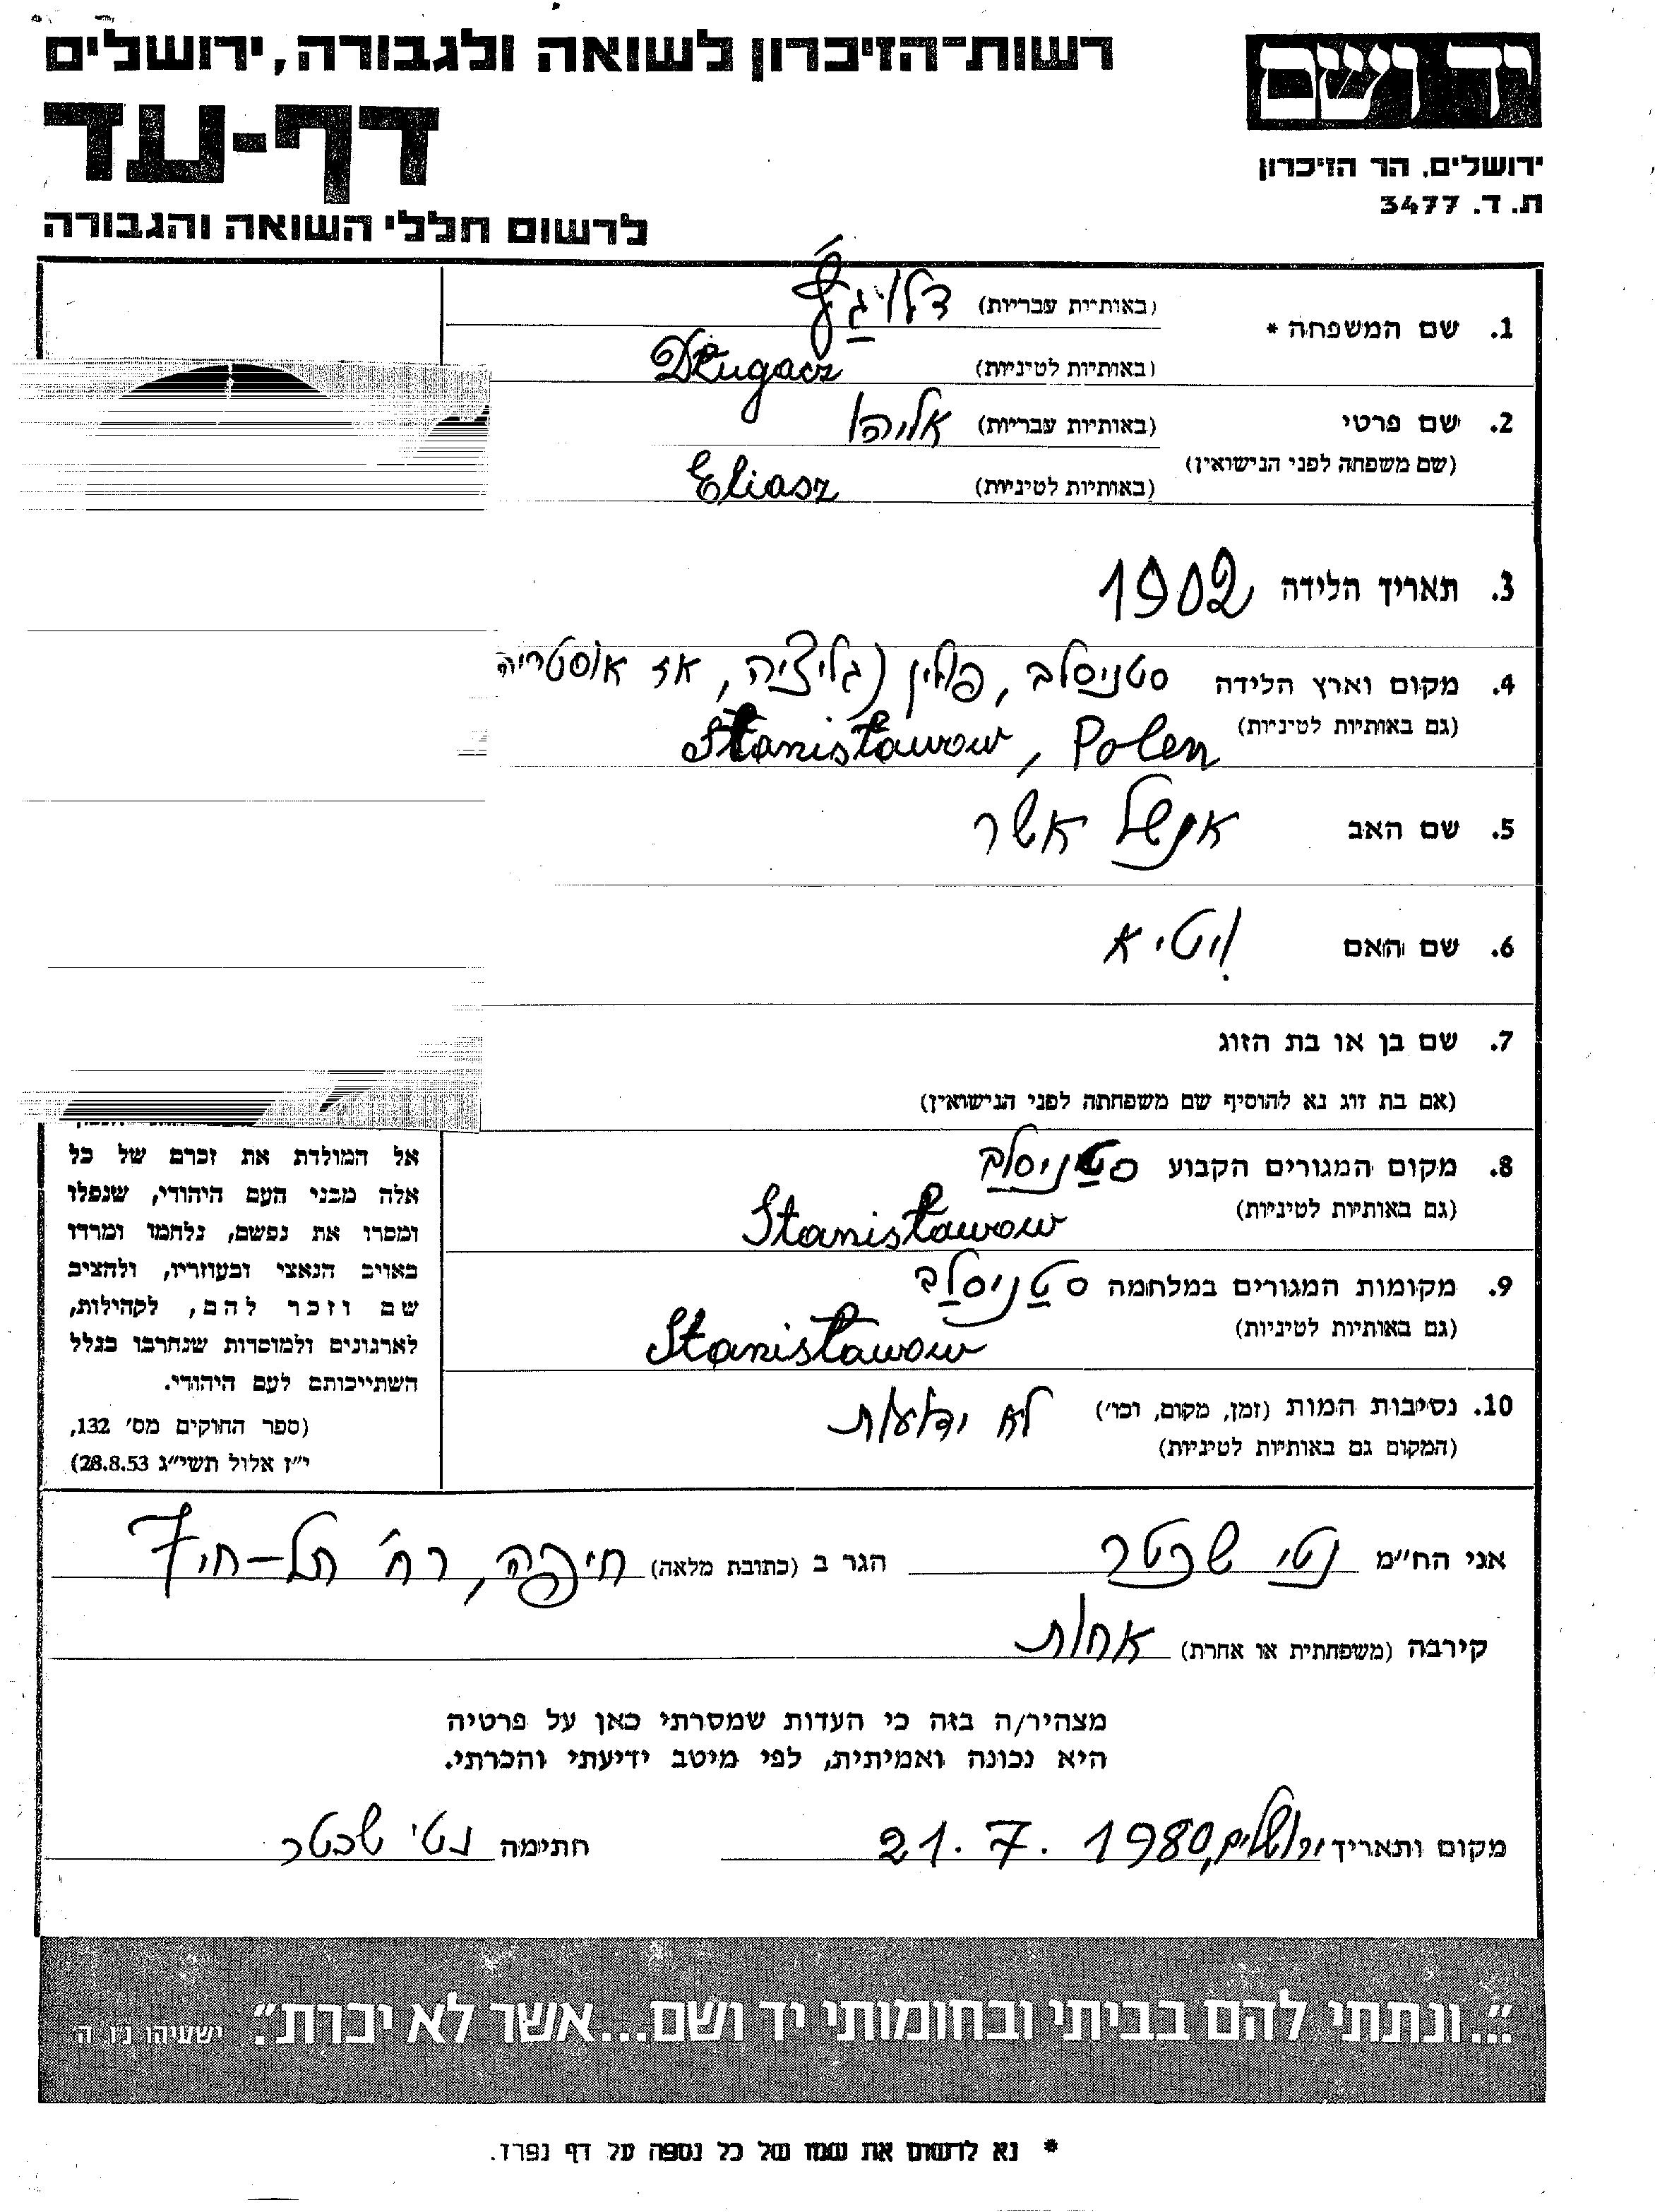 רשות־הזיכרון לשואה ולגבורה, ירושלים
דף-עד
לרשום חללי השואה והגבורה
יד ושם
ירושלים, הר הזיכרון
ת. ד. 3477
1. שם המשפחה * (באותיות עבריות)
(באותיות לטיניות) Długacz
2. שם פרטי (באותיות עבריות) אליהו
(שם משפחה לפני הנישואין)
(באותיות לטיניות) Eliasz
3. תאריך הלידה 1902
4. מקום וארץ הלידה סטניסלב, פולין (גליציה, אז אוסטריה
(גם באותיות לטיניות) Stanisławow, Polen
5. שם האב אנשל אשר
6. שם האם
7. שם בן או בת הזוג
(אם בת זוג נא להוסיף שם משפחתה לפני הנישואין)
8. מקום המגורים הקבוע סטניסלב
(גם באותיות לטיניות) Stanisławow
9. מקומות המגורים במלחמה סטניסלב
(גם באותיות לטיניות) Stanisławow
10. נסיבות המות (זמן, מקום, וכו') לא ידועות
(המקום גם באותיות לטיניות)
אל המולדת את זכרם של כל
אלה מבני העם היהודי, שנפלו
ומסרו את נפשם, נלחמו ומרדו
באויב הנאצי ובעוזריו, ולהציב
שם וזכר להם, לקהילות,
לארגונים ולמוסדות שנחרבו בגלל
השתייכותם לעם היהודי.
(ספר החוקים מס' 132,
י"ז אלול תשי"ג 28.8.53)
אני הח"מ נטי שכטר הגר ב (כתובת מלאה) חיפה, רח' תל-חי
קירבה (משפחתית או אחרת) אחות
מצהיר/ה בזה כי העדות שמסרתי כאן על פרטיה
היא נכונה ואמיתית, לפי מיטב ידיעתי והכרתי.
מקום ותאריך ירושלים, 21.7.1980 חתימה נטי שכטר
"...ונתתי להם בביתי ובחומותי יד ושם...אשר לא יכרת". ישעיהו נ"ו, ה
* נא לרשום את שמו של כל נספה על דף נפרד.